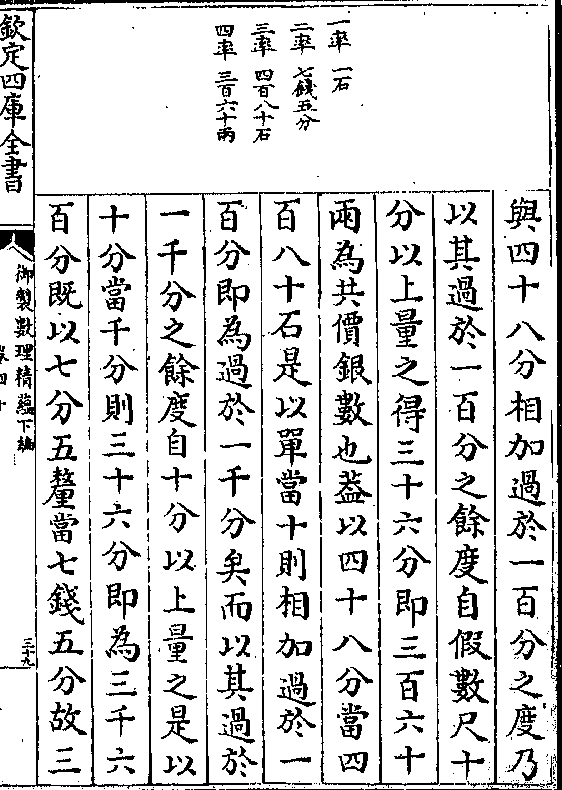 一率 一石
二率 七錢五分
三率 四百八十石
四率 三百六十兩
與四十八分相加過於一百分之度乃
以其過於一百分之餘度自假數尺十
分以上量之得三十六分即三百六十
兩為共價銀數也葢以四十八分當四
百八十石是以單當十則相加過於一
百分即為過於一千分矣而以其過於
一千分之餘度自十分以上量之是以
十分當千分則三十六分即為三千六
百分既以七分五釐當七錢五分故三
欽定四庫全書
御製數理精蘊下編
卷四十
三十九